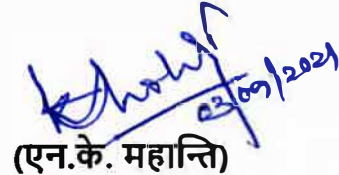 03/09/2021
(एन.के. महान्ति)